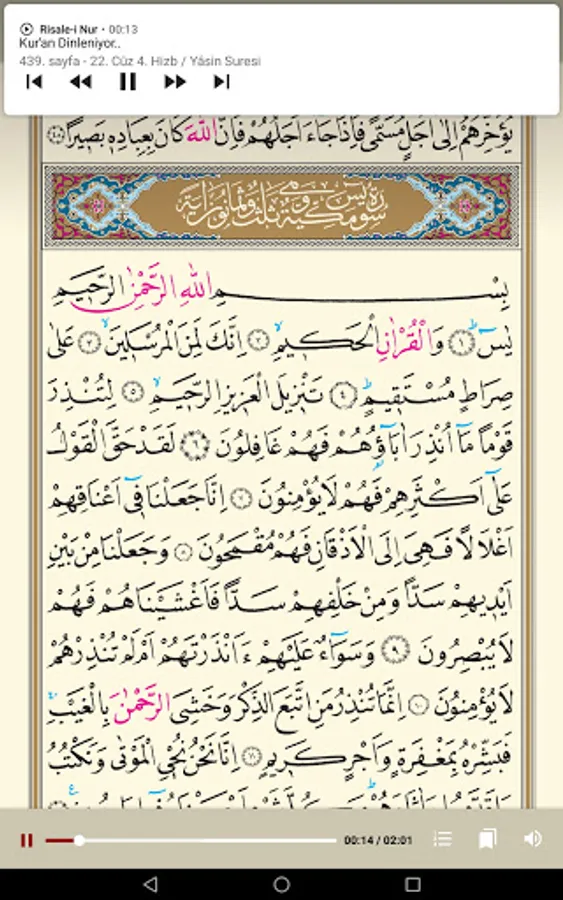 Risale-i Nur • 00:13
Kur'an Dinleniyor..
439. sayfa - 22. Cüz 4. Hizb / Yâsin Suresi
يُؤَخِّرُهُمْ اِلٰٓى اَجَلٍ مُسَمًّى فَاِذَا جَٓاءَ اَجَلُهُمْ فَاِنَّ اللّٰهَ كَانَ بِعِبَادِه۪ بَص۪يرًا ﴿٤٥﴾
بِسْمِ اللّٰهِ الرَّحْمٰنِ الرَّح۪يمِ
يٰسٓ ﴿١﴾ وَالْقُرْاٰنِ الْحَك۪يمِ ﴿٢﴾ اِنَّكَ لَمِنَ الْمُرْسَل۪ينَ ﴿٣﴾ عَلٰى
صِرَاطٍ مُسْتَق۪يمٍ ﴿٤﴾ تَنْز۪يلَ الْعَز۪يزِ الرَّح۪يمِ ﴿٥﴾ لِتُنْذِرَ
قَوْمًا مَٓا اُنْذِرَ اٰبَٓاؤُ۬هُمْ فَهُمْ غَافِلُونَ ﴿٦﴾ لَقَدْ حَقَّ الْقَوْلُ
عَلٰٓى اَكْثَرِهِمْ فَهُمْ لَا يُؤْمِنُونَ ﴿٧﴾ اِنَّا جَعَلْنَا ف۪ٓي اَعْنَاقِهِمْ
اَغْلَالًا فَهِيَ اِلَى الْاَذْقَانِ فَهُمْ مُقْمَحُونَ ﴿٨﴾ وَجَعَلْنَا مِنْ بَيْنِ
اَيْد۪يهِمْ سَدًّا وَمِنْ خَلْفِهِمْ سَدًّا فَاَغْشَيْنَاهُمْ فَهُمْ
لَا يُبْصِرُونَ ﴿٩﴾ وَسَوَٓاءٌ عَلَيْهِمْ ءَاَنْذَرْتَهُمْ اَمْ لَمْ تُنْذِرْهُمْ
لَا يُؤْمِنُونَ ﴿١٠﴾ اِنَّمَا تُنْذِرُ مَنِ اتَّبَعَ الذِّكْرَ وَخَشِيَ الرَّحْمٰنَ بِالْغَيْبِ
فَبَشِّرْهُ بِمَغْفِرَةٍ وَاَجْرٍ كَر۪يمٍ ﴿١١﴾ اِنَّا نَحْنُ نُحْيِ الْمَوْتٰى وَنَكْتُبُ
00:14 / 02:01